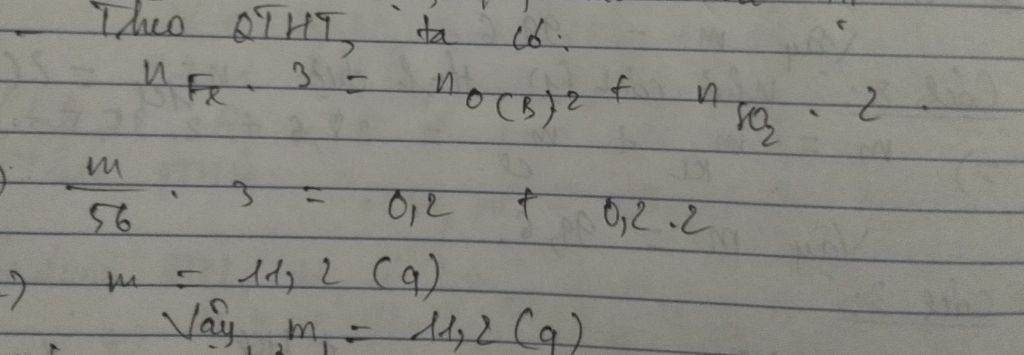 - Theo QTHT, ta có:
n Fe . 3 = n O(B) 2 + n SO2 . 2 .
m/56 . 3 = 0,2 + 0,2.2
=> m = 11,2 (g)
Vậy m = 11,2 (g)